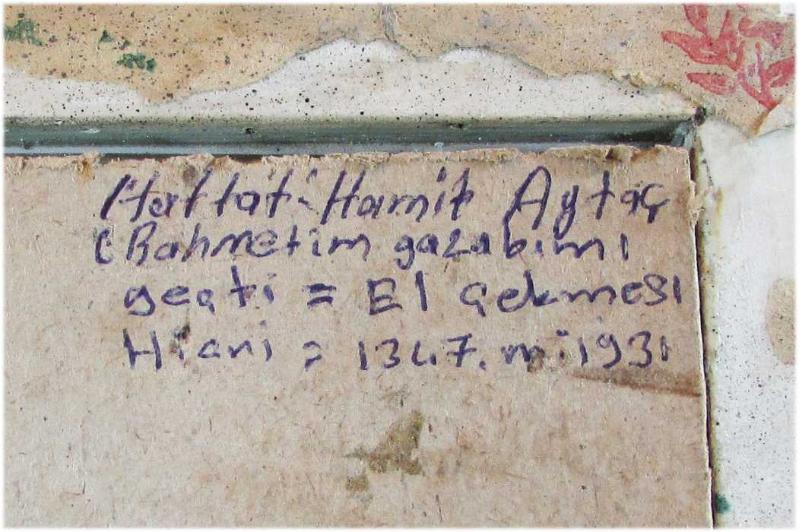 Hattat-Hamit Aytaç
(Rahmetim gazabımı
geçti = El çekmesi
Hicri = 1347. m: 1931